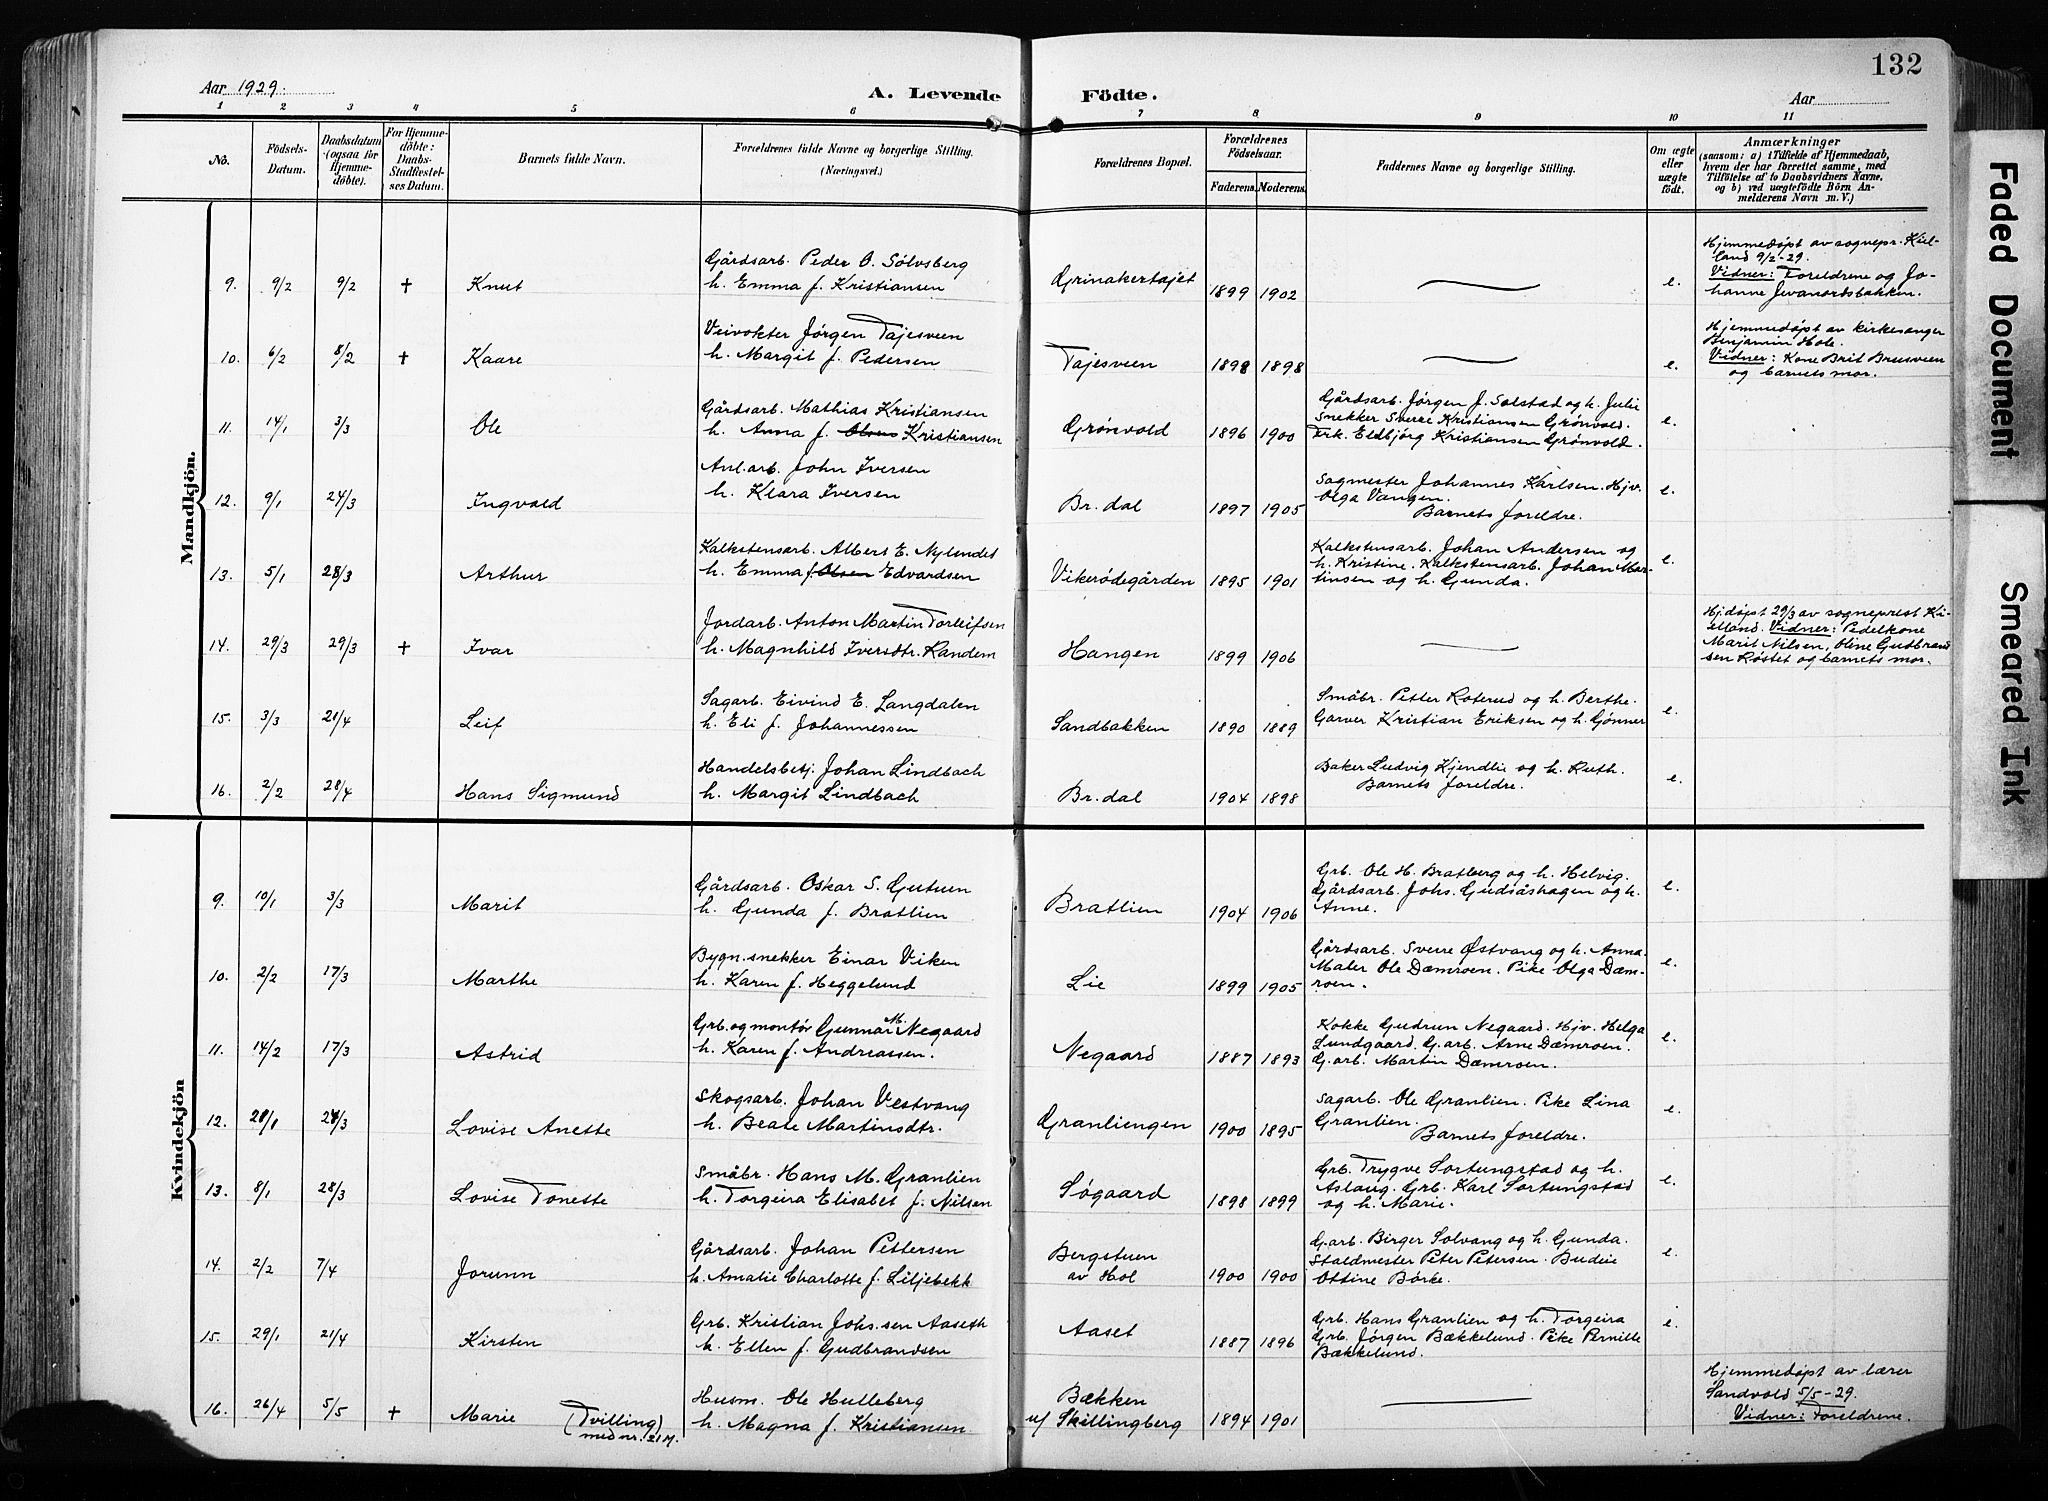 132
Aar 1929.
A. Levende Födte.
Aar
1 2 3 4 5 6 7 8 9 10 11
Nô.
Födsels-
Datum.
Daabsdatum
(ogsaa för
Hjemme-
döbte).
For Hjemme-
döbte:
Daabs-
Stadfæstel-
ses Datum.
Barnets fulde Navn.
Forældrenes fulde Navne og borgerlige Stilling.
(Næringsvei.)
Forældrenes Bopæl.
Forældrenes
Födselsaar.
Faderens. Moderens.
Faddernes Navne og borgerlige Stilling.
Om ægte
eller
uægte
födt.
Anmærkninger
(saasom: a) i Tilfælde af Hjemmedaab,
hvem der har forrettet samme, med
Tilföielse af to Daabsvidners Navne,
og b) ved uægtefödte Börn An-
melderens Navn m. V.)
Mandkjön.
9. 9/2 9/2 † Knut
Gårdsarb. Peder O. Sølvsberg
h. Emma f. Kristiansen
Grinakertajet 1899 1902 e.
Hjemmedøpt av sognepr. Kiel-
land 9/2-29.
Vidner: Foreldrene og Jo-
hanne Jevanordsbakken.
10. 6/2 8/2 † Kaare
Veivokter Jørgen Tajesveen
h. Margit f. Pedersen
Tajesveen 1898 1898 e.
Hjemmedøpt av kirkesanger
Benjamin Hole.
Vidner: Kone Brit Brusveen
og barnets mor.
11. 14/1 3/3 Ole
Gårdsarb. Mathias Kristiansen
h. Anna f. Olsen Kristiansen
Grønvold 1896 1900
Gårdsarb. Jørgen J. Solstad og h. Julie
Snekker Sverre Kristiansen Grønvold.
Frk. Eldbjørg Kristiansen Grønvold.
e.
12. 9/1 24/3 Ingvald
Anl.arb. John Iversen
h. Klara Iversen
Br.dal 1897 1905
Sagmester Johannes Karlsen. Hjv.
Olga Vangen.
Barnets foreldre.
e.
13. 5/1 28/3 Arthur
Kalkstensarb. Albert E. Nylendet
h. Emma f. Olsen Edvardsen
Vikerødegården 1895 1901
Kalkstensarb. Johan Andersen og
h. Kristine. Kalkstensarb. Johan Mar-
tinsen og h. Gunda.
e.
14. 29/3 29/3 † Ivar
Jordarb. Anton Martin Torleifsen
h. Magnhild Iversdtr. Randem
Hangen 1899 1906
Hjdøpt 29/3 av sogneprest Ki-
elland. Vidner: Pedelkone
Marit Nilsen, Oline Gudbrand
sen Røstet og barnets mor.
15. 3/3 21/4 Leif
Sagarb. Eivind E. Langdalen
h. Eli f. Johannessen
Sandbakken 1890 1889
Småbr. Petter Roterud og h. Berthe.
Garver Kristian Eriksen og h. Gønner
e.
16. 2/2 28/4 Hans Sigmund
Handelsbetj. Johan Lindbach
h. Margit Lindbach
Br.dal 1904 1898
Baker Ludvig Kjendlie og h. Ruth.
Barnets foreldre.
e.
Kvindekjön
9. 10/1 3/3 Marit
Gårdsarb. Oskar S. Gutuen
h. Gunda f. Bratlien
Bratlien 1904 1906
Grb. Ole H. Bratberg og h. Helvig.
Gårdsarb. Johs. Gudsåshagen og h.
Anne.
e.
10. 2/2 17/3 Marthe
Bygn.snekker Einar Viken
h. Karen f. Heggelund
Lie 1899 1905
Gårdsarb. Sverre Østvang og h. Anna.
Maler Ole Dæmroen. Pike Olga Dæm-
roen.
e.
11. 14/2 17/3 Astrid
Grb. og montør Gunnar M. Negaard
h. Karen f. Andreassen.
Negaard 1887 1893
Kokke Gudrun Negaard. Hjv. Helga
Lundgaard. G.arb. Arne Dæmroen.
G.arb. Martin Dæmroen.
e.
12. 28/3 Lovise Anette
Skogsarb. Johan Vestvang
h. Beate Martinsdtr.
Granliengen 1900 1895
Sagarb. Ole Granlien. Pike Lina
Granlien.
Barnets foreldre.
e.
13. 8/1 28/3 Lovise Tonette
Småbr. Hans M. Granlien
h. Torgeira Elisabet f. Nilsen
Søgaard 1898 1899
Grb. Trygve Sortungstad og h.
Aslaug. Grb. Karl Sortungstad
og h. Marie.
e.
14. 2/2 7/4 Jorunn
Gårdsarb. Johan Pettersen
h. Amalie Charlotte f. Liljebekk
Bergstuen
av Hol 1900 1900
G.arb. Birger Solvang og h. Gunda.
Staldmester Peter Petersen. Budeie
Ottine Børke.
e.
15. 29/1 21/4 Kirsten
Grb. Kristian Johs.sen Aaseth
h. Ellen f. Gudbrandsen
Aaset 1887 1896
Grb. Hans Granlien og h. Torgeira
Grb. Jørgen Bækkelund. Pike Pernille
Bækkelund.
e.
16. 26/4 5/5 † Marie (Tvilling)
med nr. 21 M.
Husm. Ole Hulleberg
h. Magna f. Kristiansen
Bækken
u/ Skillingberg 1894 1901
Hjemmedøpt av lærer
Sandvold 5/5-29.
Vidner: Foreldrene.
Faded Document
Smeared Ink